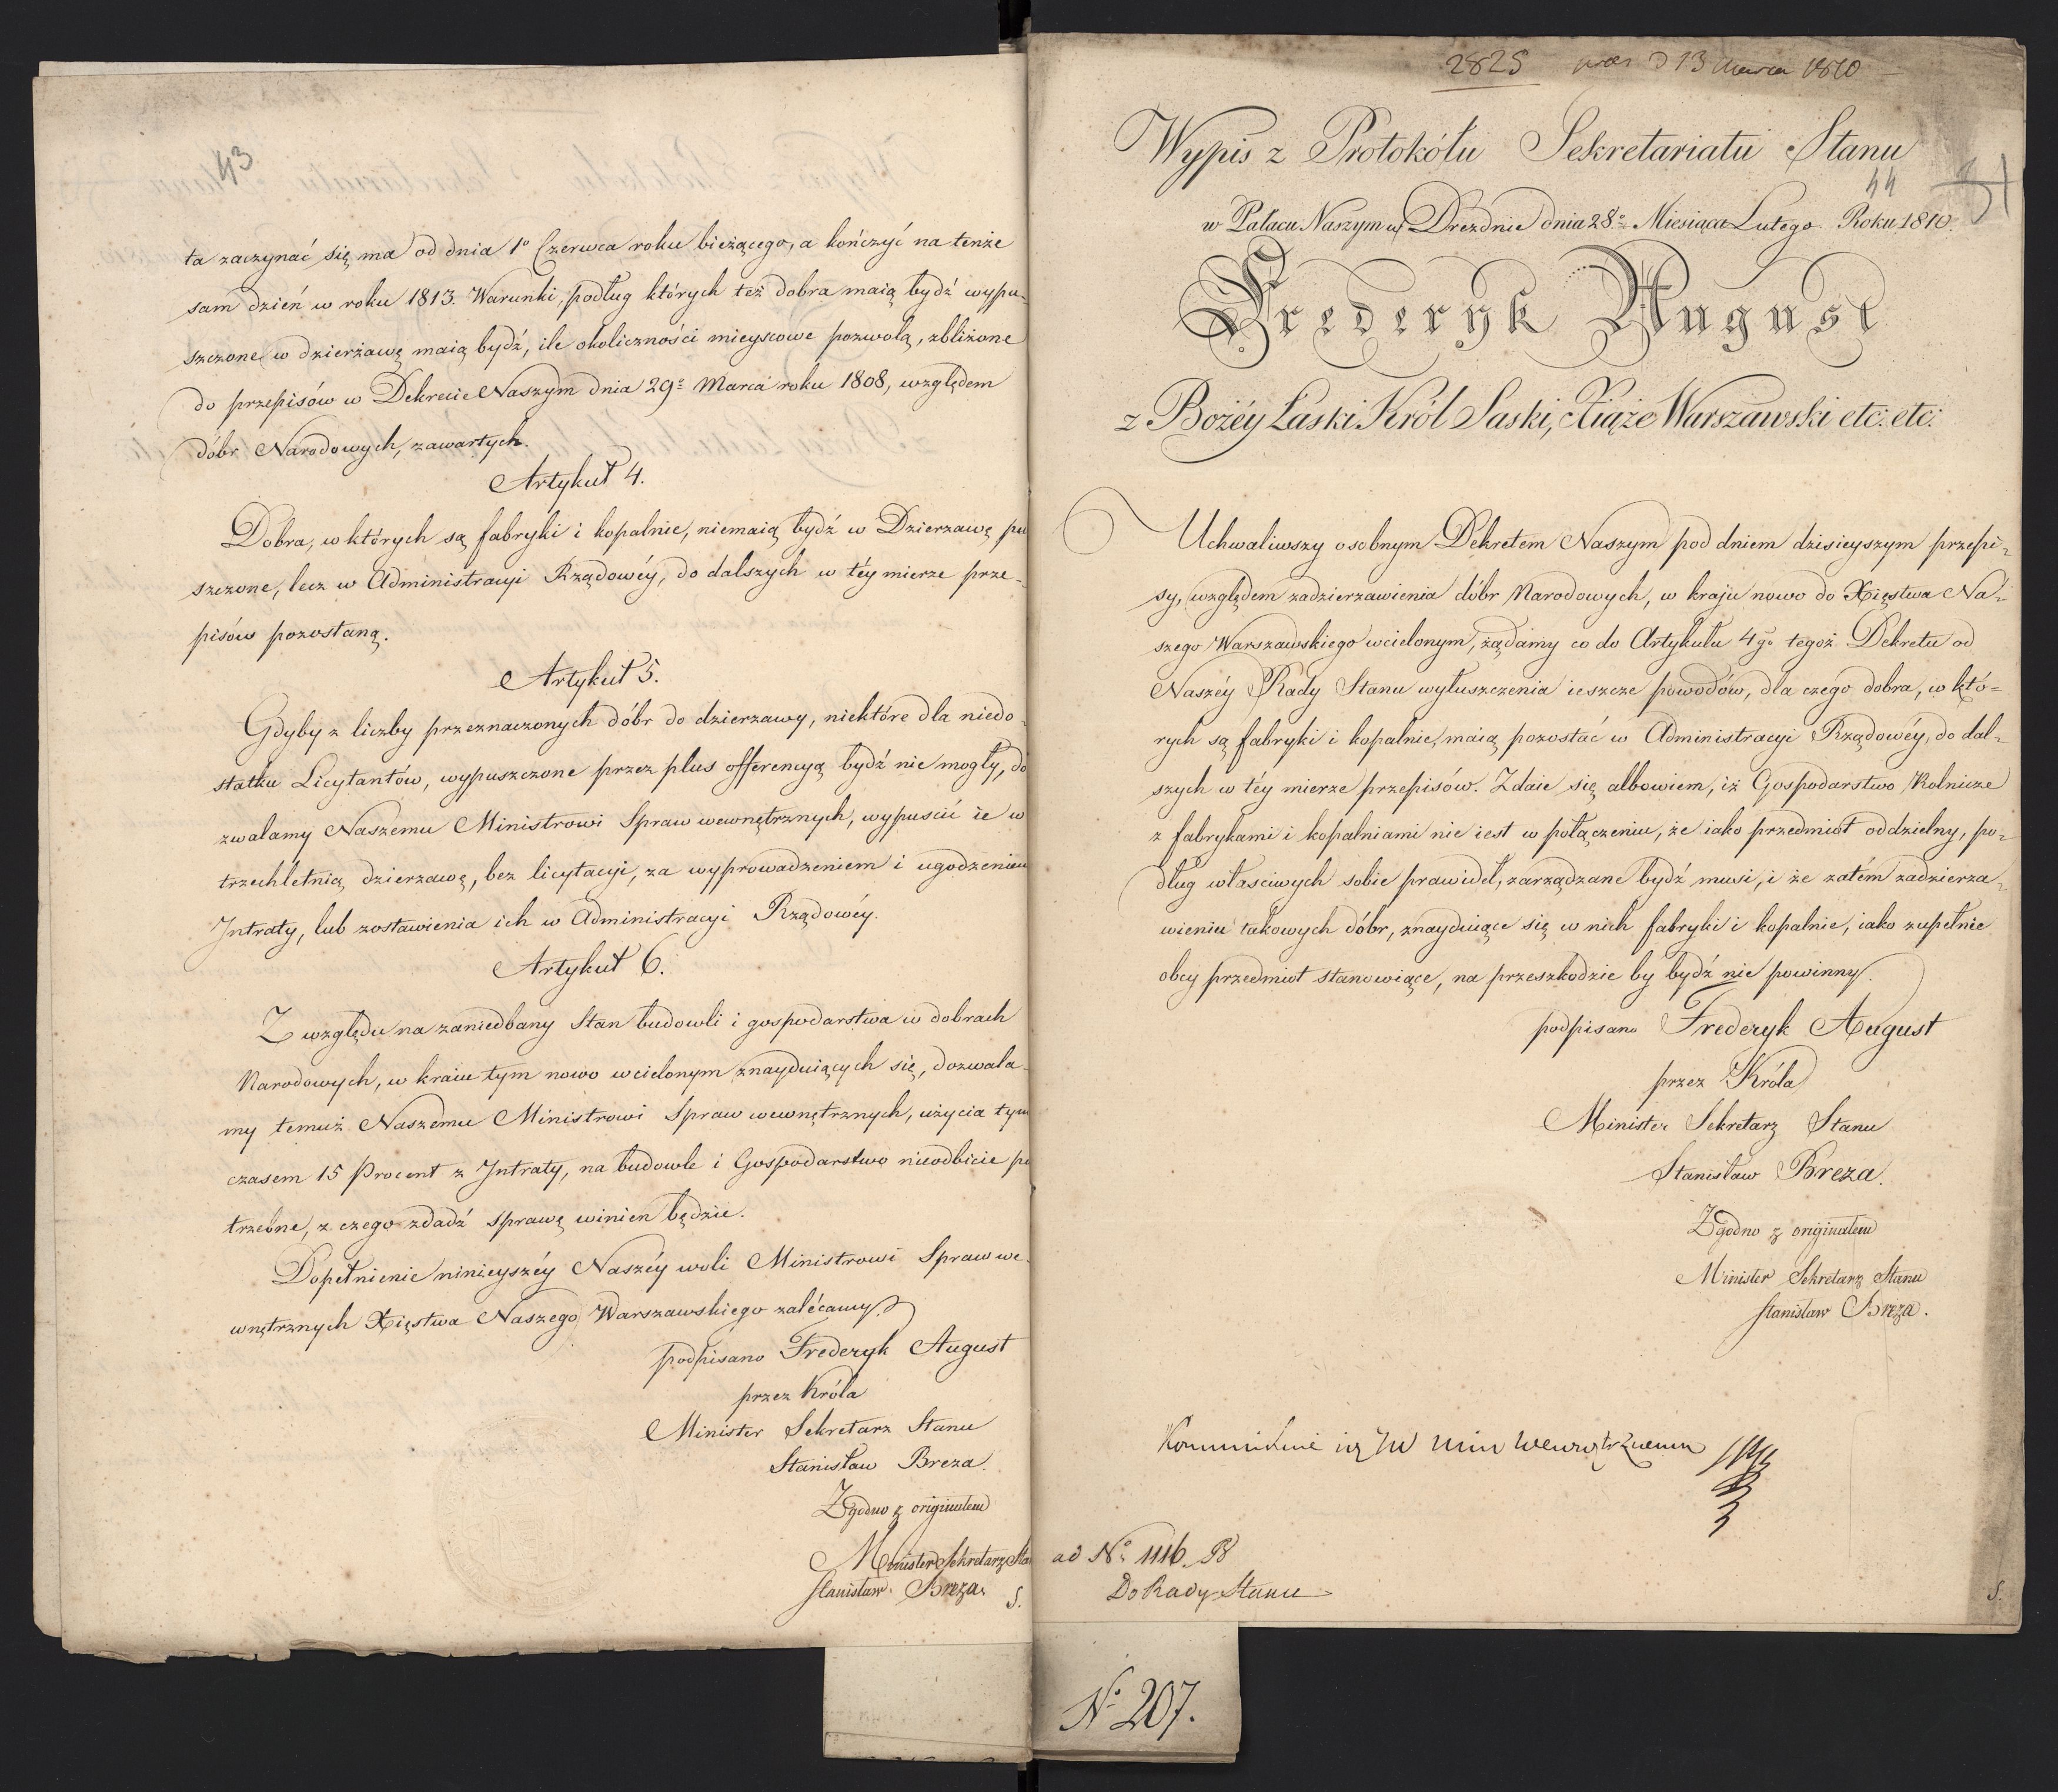 43
ta zaczynać się ma od dnia 1º Czerwca roku bieżącego, a kończyć na tenże
sam dzień w roku 1813. Warunki, podług których też dobra maią bydź wypu-
szczone w dzierżawę maią bydź, ile okoliczności mieyscowe pozwolą, zbliżone
do przepisów w Dekrecie Naszym dnia 29º Marca roku 1808, względem
dóbr Narodowych, zawartych.
Artykuł 4.
Dobra, w których są fabryki i kopalnie, niemaią bydź w Dzierzawę pu
szczone, lecz w Administracyi Rządowéy, do dalszych w téy mierze prze-
pisów pozostaną.
Artykuł 5.
Gdyby z liczby przeznaczonych dóbr do dzierzawy, niektóre dla niedo
statku Licytantów, wypuszczone przez plus offerencyą bydź nie mogły, do
zwalamy Naszemu Ministrowi Spraw wewnętrznych, wypuscić ie w
trzechletnią dzierzawę, bez licytacyi, za wyprowadzeniem i ugodzeniem
Jntraty, lub zostawienia ich w Administracyi Rządowéy.
Artykuł 6.
Z względu na zaniedbany Stan budowli i gospodarstwa w dobrach
Narodowych, w kraiu tym nowo wcielonym znayduiących się, dozwala-
my temuż Naszemu Ministrowi Spraw wewnętrznych, użycia tym
czasem 15 Procent z Jntraty, na budowle i Gospodarstwo nieodbicie po
trzebne, z czego zdadź sprawę winien będzie.
Dopełnienie ninieyszéy Naszéy woli Ministrowi Spraw we-
wnętrznych Xięstwa Naszego Warszawskiego zalécamy.
podpisano Frederyk August
przez Króla
Minister Sekretarz Stanu
Stanisław Breza.
Zgodno z originałem
Minister Sekretarz Sta
Stanisław Breza.
S.
2825 pres d 13 Marca 1810
Wypis z Protokółu Sekretariatu Stanu
44
w Pałacu Naszym w Dreznie dnia 28º Miesiąca Lutego Roku 1810.
Frederyk August
z Bożéy Łaski Król Saski, Xiąże Warszawski etc: etc:
Uchwaliwszy osobnym Dekretem Naszym pod dniem dzisieyszym przepi-
sy, względem zadzierzawienia dóbr Narodowych, w kraju nowo do Xięstwa Na-
szego Warszawskiego wcielonym, żądamy co do Artykułu 4go tegoż Dekretu od
Naszéy Rady Stanu wyłuszczenia ieszcze powodów, dla czego dobra, w któ-
rych są fabryki i kopalnie, maią pozostać w Administracyi Rządowéy, do dal-
szych w téy mierze przepisów. Zdaie się albowiem, iż Gospodarstwo Rolnicze
z fabrykami i kopalniami nie iest w połączeniu, że iako przedmiot oddzielny, po-
dług właściwych sobie prawideł, zarządzane bydź musi, i że zatém zadzierza-
wieniu takowych dóbr, znayduiące się w nich fabryki i kopalnie, iako zupełnie
obcy przedmiot stanowiące, na przeszkodzie by bydź nie powinny.
podpisano Frederyk August
przez Króla
Minister Sekretarz Stanu
Stanisław Breza.
Zgodno z originałem
Minister Sekretarz Stanu
Stanisław Breza.
JW Min Wewnętrznemu
ad Nº 1116
Do Rady Stanu
S.
Nº 207.